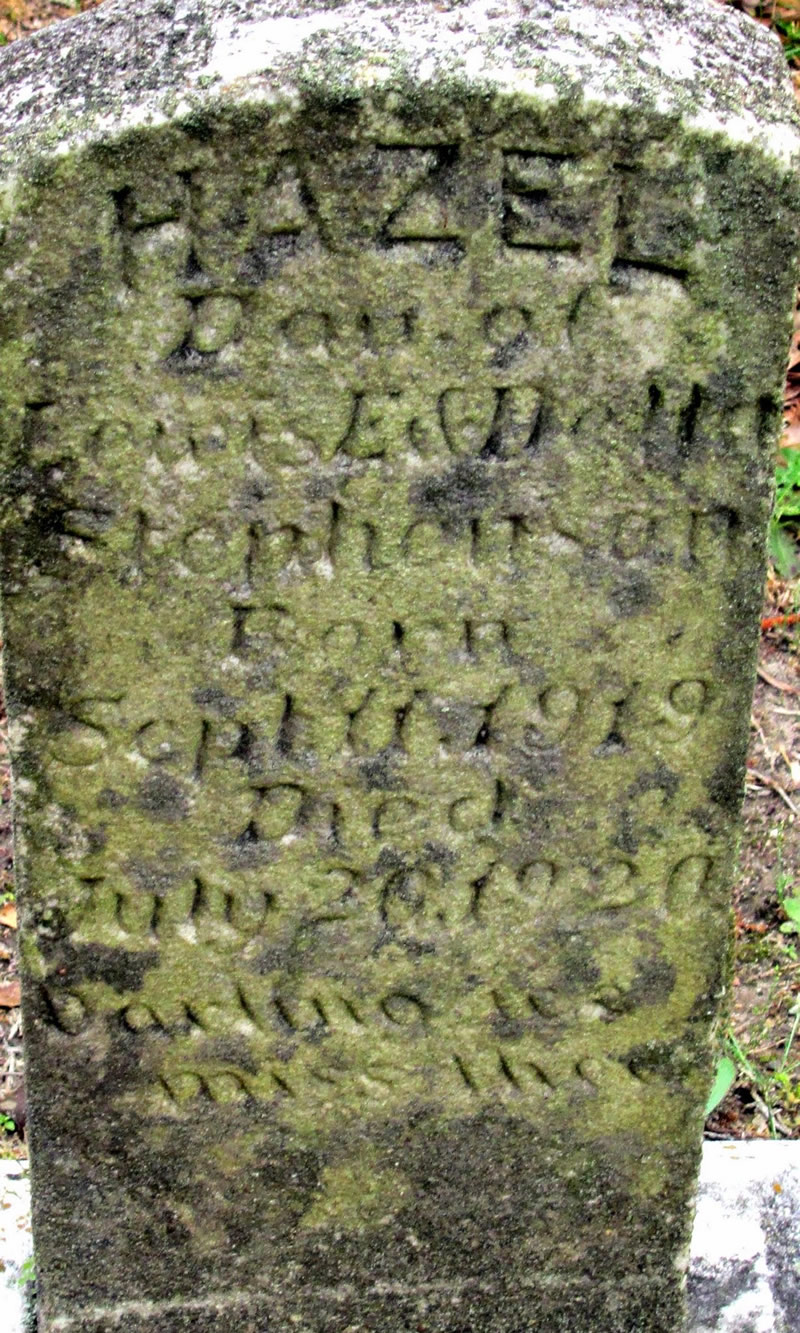 HAZEL
Dau. of
Louis E. & Della
Stephenson
Born
Sept. 11, 1919
Died
July 26, 1920
Darling we
miss thee